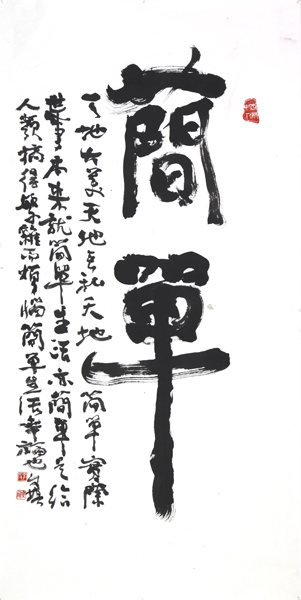 簡單
天地大美天地無私天地簡單實際
世事本來就簡單生活亦簡單是給
人類搞得複雜而煩惱簡單生活幸福也